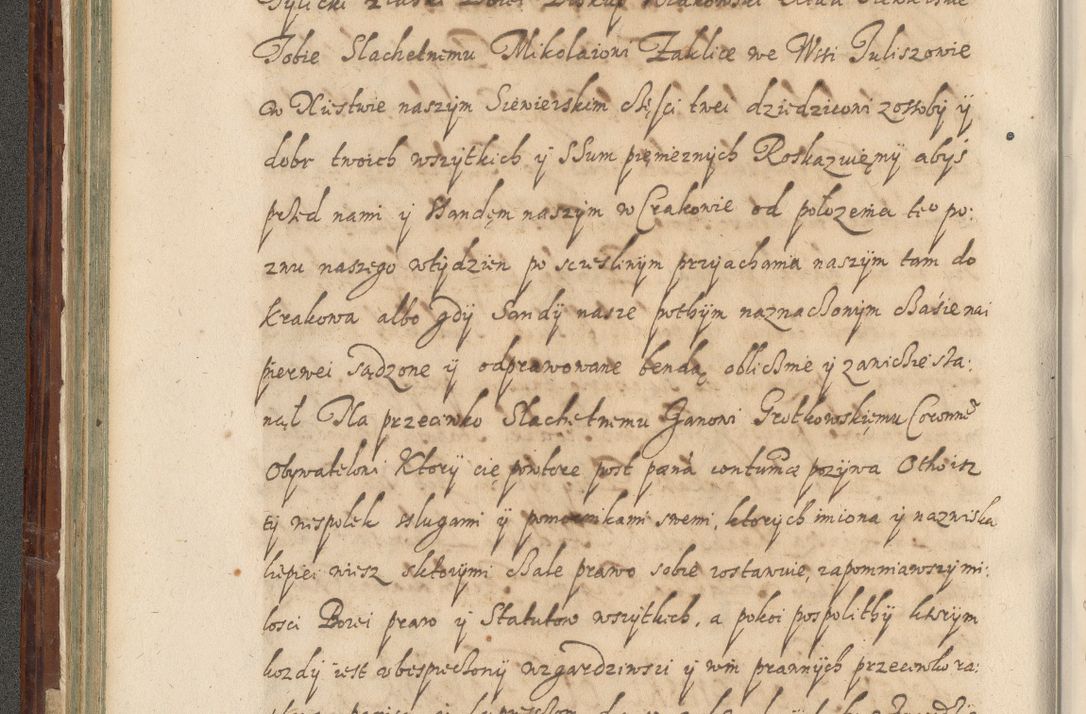 Tobie Slachetnemu Mikolaiowi Zaklice we Wsi Juliszowie
w Xiestwie naszym Siewierskim cżęsci twei dziedzicowi zossoby ÿ
dobr twoich wszÿtkich ÿ SSum pięnieznÿch Roskazuięmÿ abÿs
przed nami ÿ Sandęm naszÿm w Crakowie od połozenia te° po:
znu naszego wtÿdzien po sczeslinÿm przÿiachania naszÿm tam do
Krakowa albo gdÿ Sandÿ nasze pothÿm naznaczonÿm cżasie nai
pierwei sądzone ÿ odprawowane bendą obliczme ÿ zawichie sta:
nął Na przeciwko Slachetnemu Janowi Grotkowskięmu Coronne
Obÿwatelowi Ktorÿ cię powtore post paena contumacę pozÿwa Otho isz
tÿ wespolek sslugami ÿ pomocnikami swemi, ktorÿch imiona ÿ nazwiska
liepiei wiesz sktorÿmi cżale prawo sobie zostawuie, zapomniawszÿ mi:
losci Bozei praw ÿ Statutow wszÿtkich, a pokoi pospolithÿ ktorÿm
kozdÿ iest obespieczonÿ wzgardziwszi ÿ wm prawnÿch przeciwko za: